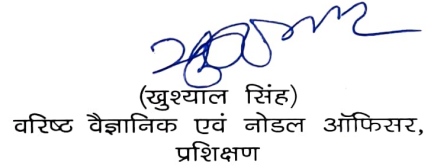 (खुश्याल सिंह)
वरिष्ठ वैज्ञानिक एवं नोडल ऑफिसर,
प्रशिक्षण